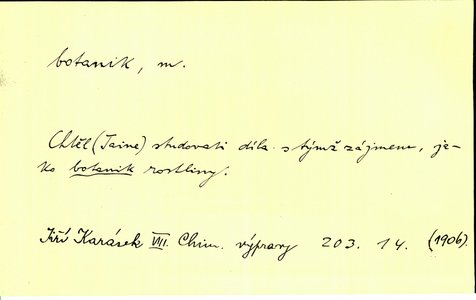 botanik, m.
Chtěl (Taine) studovati díla s týmž zájmem, ja-
ko botanik rostliny.
Jiří Karásek VIII. Chim. výpravy 203. 14. (1906).